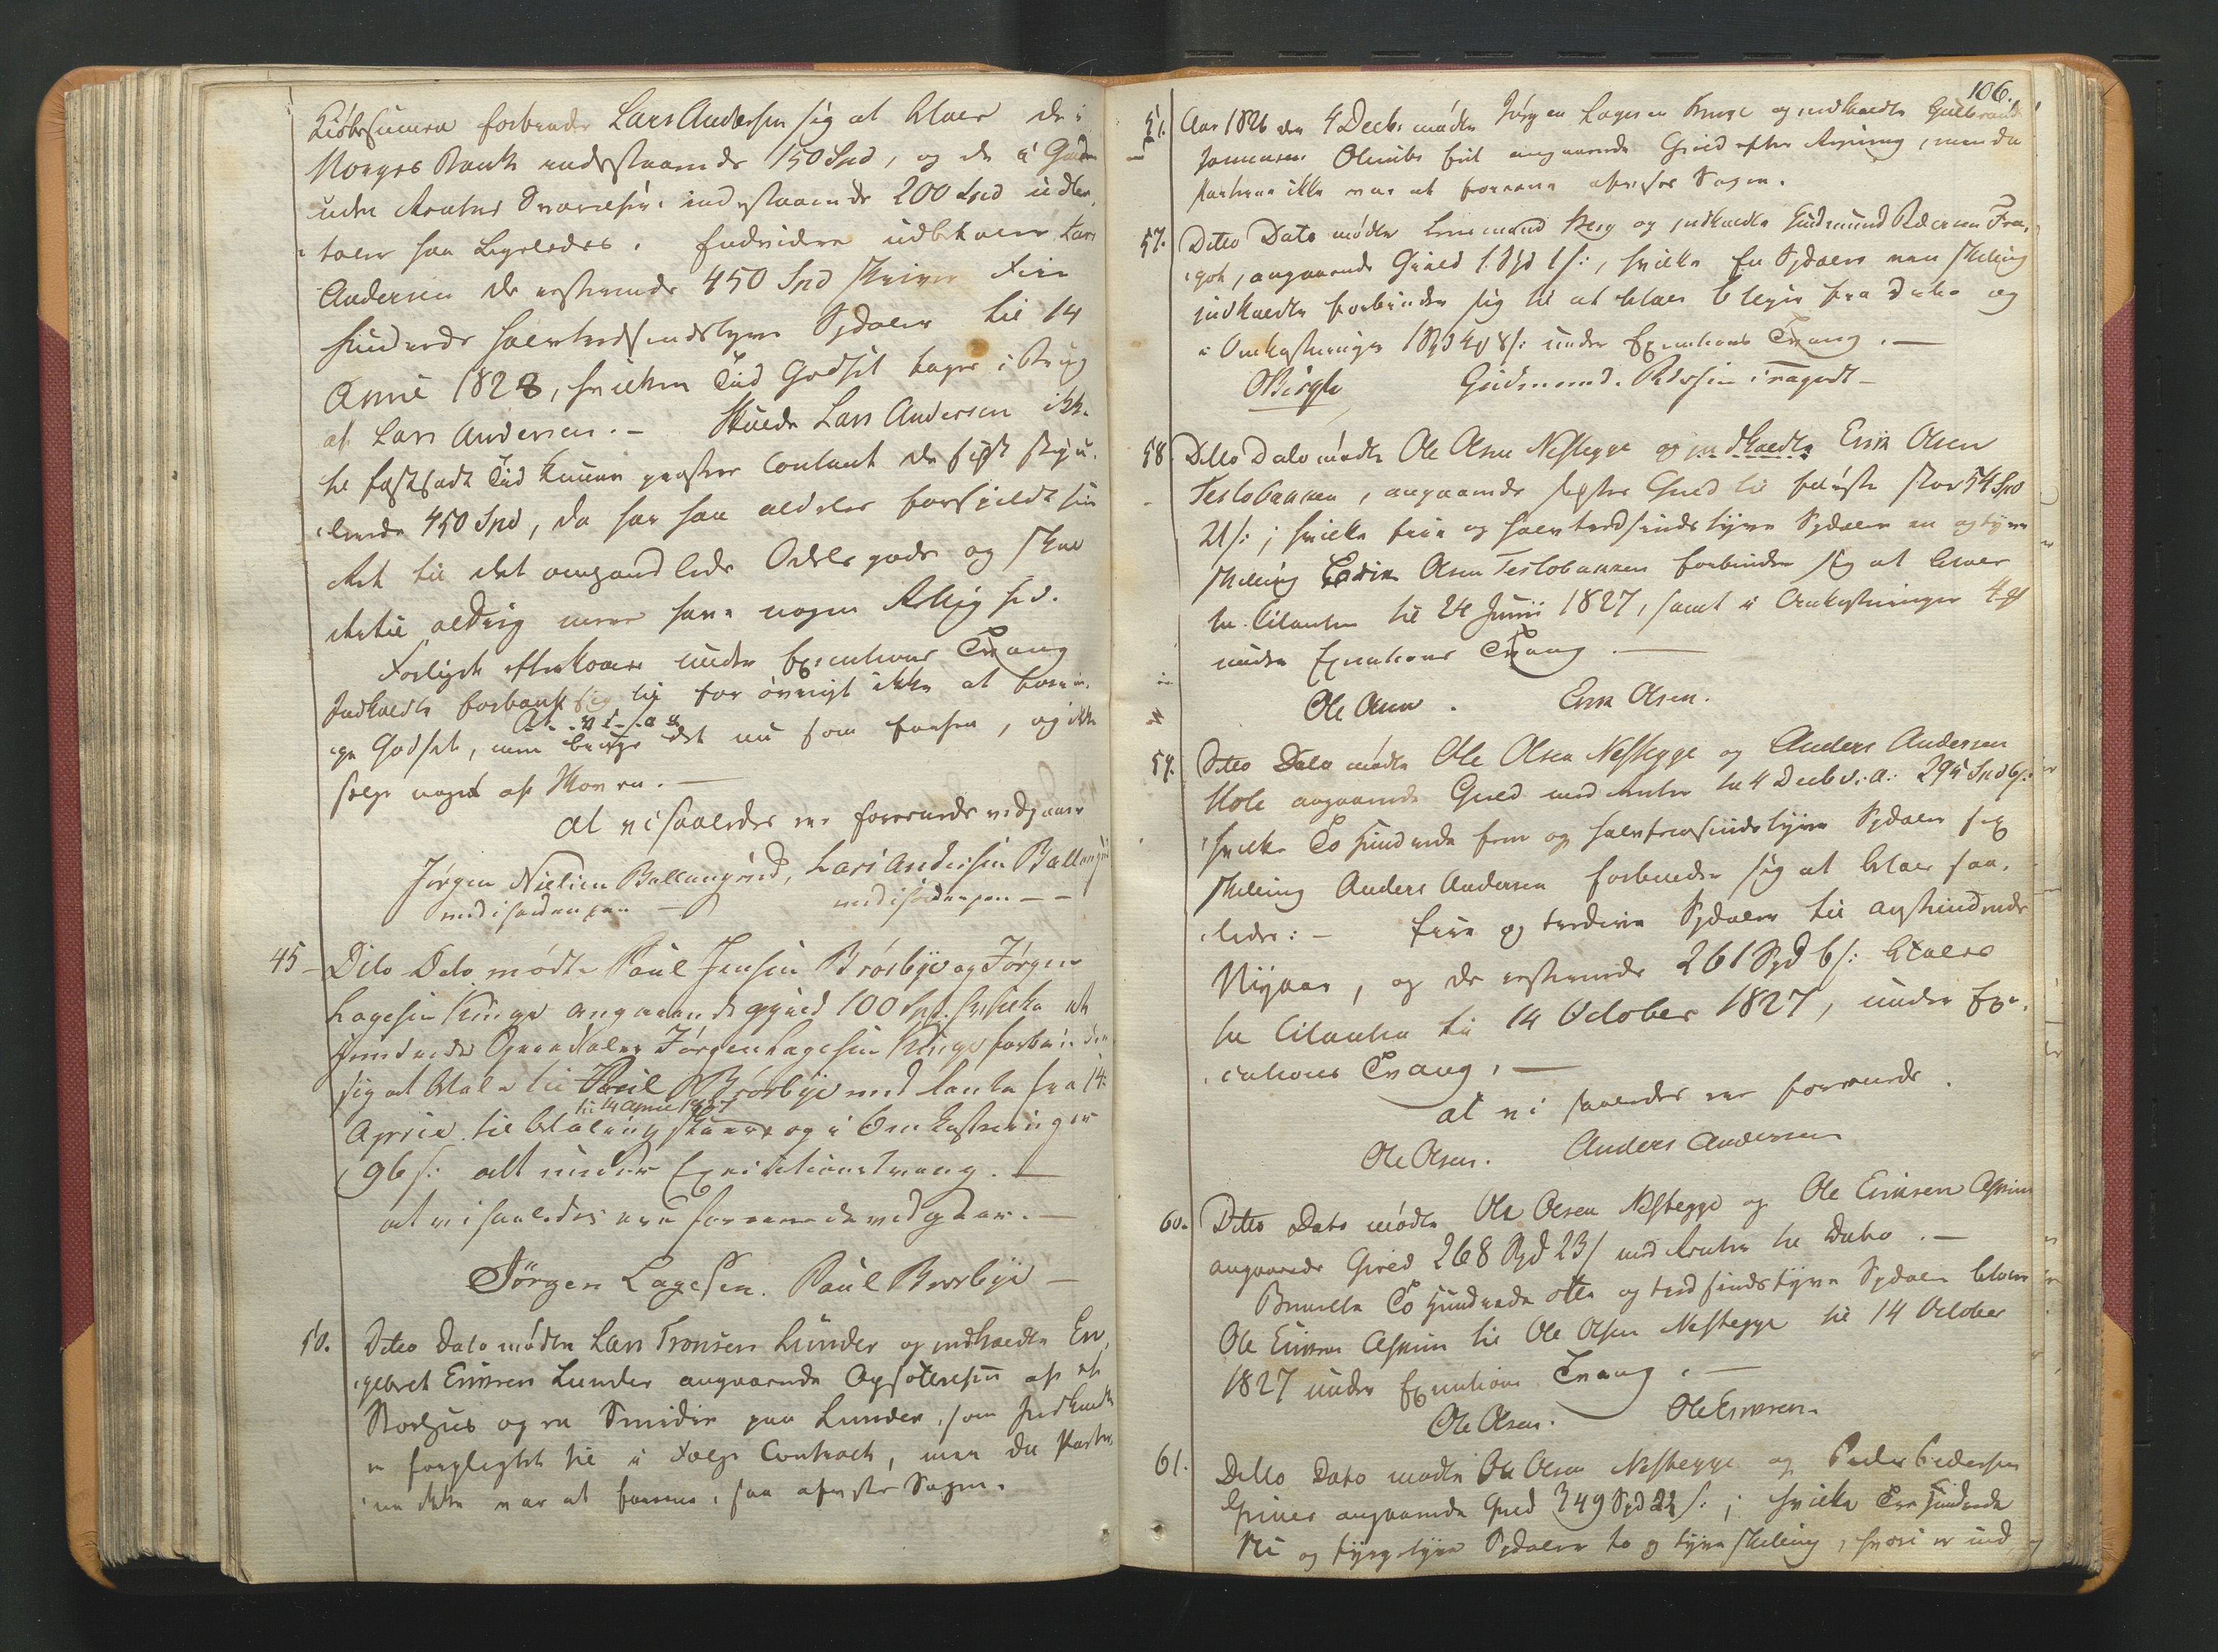 Kiøbesumen forbandt Lars Andersen sig at betale de i
Norges Bank indestaaende 150 Spd, og de i Gaden
uden Renter indestaaende 200 Spd
taler han ligeledes. Endvidere udbetaler Lars
Andersen de resterende 450 Spd skriver Fire
hundrede halvtredsindstyve Spdaler til 14
April 1828, hvilken Tiid Godset tages i brug
af Lars Andersen. - Skulde Lars Andersen ikke
til fastsadt Tiid kunne præstere Contant de sidst stipu-
lerede 450 Spd, da har han aldeles forspildt sin
Ret til det omhandlede Odelsgods og skal
dertil aldrig mere have nogen Rettighed.
Forliget efterkomes under Executions Tvang
Indkaldte forbandt sig til for øvrigt ikke at
Godset, men bruge det nu som forhen, og ikke
selge noget af Skoven. -
At vi saaledes ere forenede vedgaaer
Jørgen Nielsen Ballangrud, Lars Andersen Ballangrud
med iholden pen - med iholden pen - -
45 - Dito Dato mødte Paul Jensen Brørbye og Jørgen
Lagesen Kinge angaaende gjeld 100 Spd. hvilke et
hundrede Speciedaler Jørgen Lagesen Kinge forbinder
sig at betale til Paul Brørbye med Renter fra 14
til 14 April 1827
April til betaling skeer og i Omkostninger
96 s: alt under Executionstvang. -
at vi saaledes ere forenede vedgaaer. -
Jörgen Lagesen. Paul Brorbye -
50. Ditto Dato mødte Lars Tronsen Lunder og indkaldte En-
gebret Erirsen Lunder angaaende Opførelsen af et
Storhus og en Smidie paa Lunder, som Indkaldte
er forpligtet til i Følge Contract, men da Parter-
ne ikke var at forene, saa afvistes Sagen.
106.
51. Aar 1826 den 4 Decbr. mødte Jørgen Lagesen Kinge og indkaldte Gulbrand
angaaende Gield efter Regning, men da
Parterne ikke var at forene afvises Sagen.
57. Ditto Dato mødte Berg og indkaldte Gudmund Pedersen Fra-
angaaende Gield 1 Spd 1 s:, hvilke En Spdaler een skilling
indkaldte forbinder sig til at betale 6 Uger fra Dato og
i Omkostninger 1 Spd 48 s: under Executions Tvang. -
Gudmund. Pedersen
58. Ditto Dato mødte Ole Olsen Nestegge og indkaldte Erik Olsen
Teslobakken, angaaende Gield til stor 54 Spd
21 s:; hvilke fire og halvtredsindstyve Spdaler en og tyve
skilling Erik Olsen Teslobakken forbinder sig at betale
til Citanten til 24 Junii 1827, samt i Omkostninger
under Executions Tvang. -
Ole Olsen. Erik Olsen.
59. Ditto Dato mødte Ole Olsen Nestegge og Anders Andersen
Hole angaaende Gield med Renter til 4 Decb d: a: 295 Spd 6 s:
hvilke To Hundrede fem og halvfemsindstyve Spdaler sex
skilling Anders Andersen forbinder sig at betale saa-
ledes: - fire og tredive Spdaler til anstundende
Nyaar, og de resterende 261 Spd 6 s: betales
til Citanten til 14 October 1827, under Exe-
cutions Tvang. -
at vi saaledes ere forenede.
Ole Olsen. Anders Andersen
60. Ditto Dato mødte Ole Olsen Nestegge og Ole Eriksen
angaaende Gield 268 Spd 23 s med Renter til Dato. -
Bemelte To Hundrede otte og tredsindstyve Spdaler betaler
Ole Eriksen til Ole Olsen Nestegge til 14 October
1827 under Executions Tvang. -
Ole Olsen. Ole Eriksen.
61. Ditto Dato mødte Ole Olsen Nestegge og Peder Pedersen
angaaende Gield 349 Spd 22 s:; hvilke Tre Hundrede
Ni og fyrgetyve Spdaler to og tyve skilling, hvori er ind-